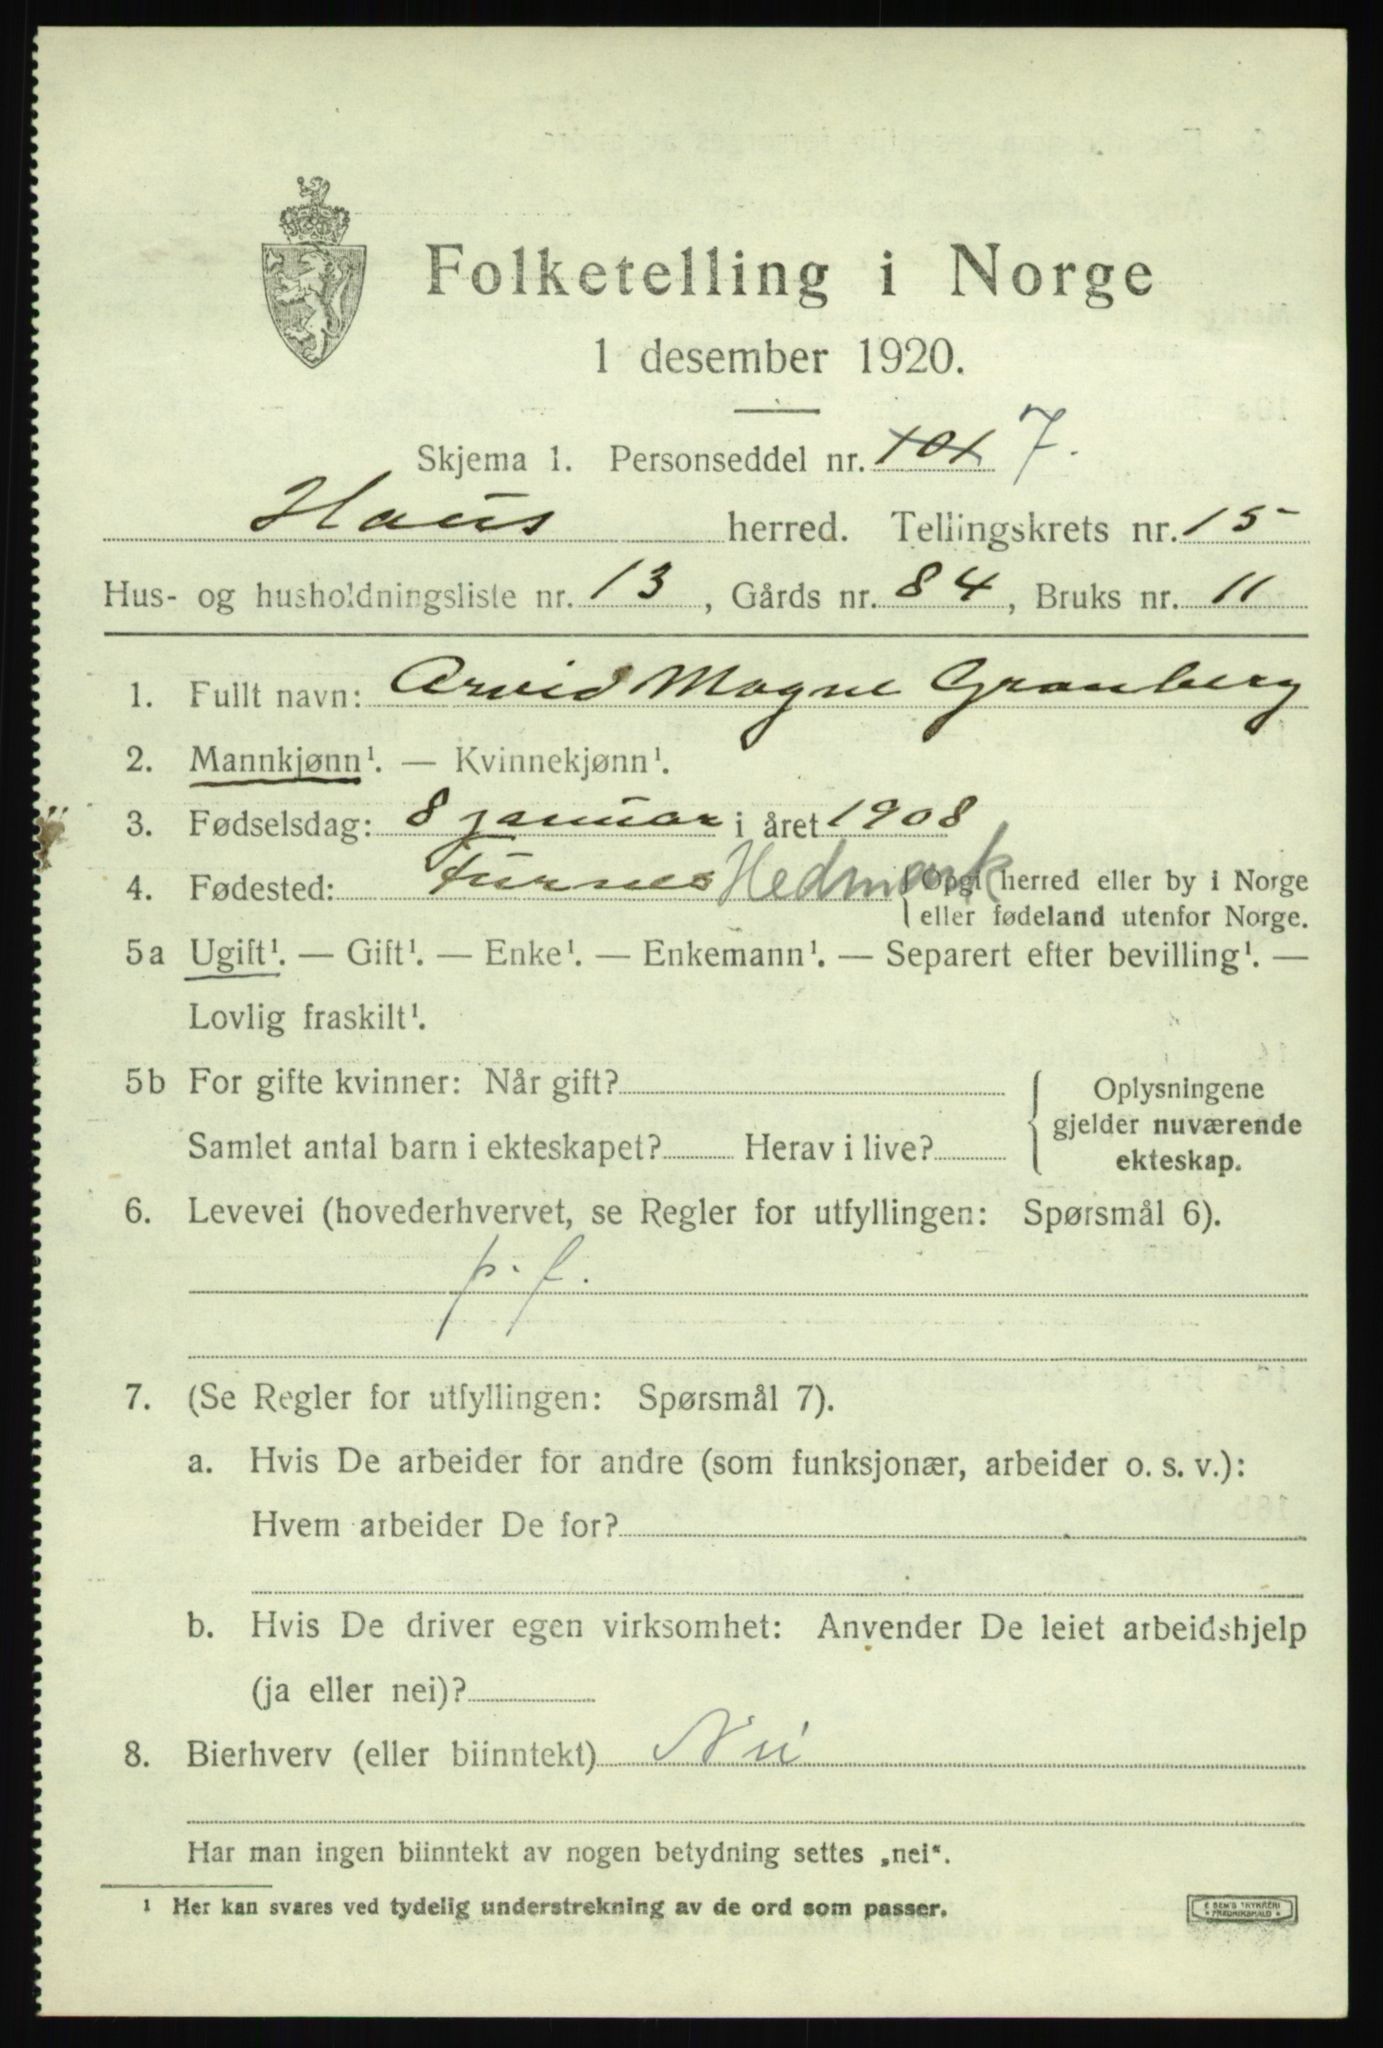 Folketelling i Norge
1 desember 1920.
Skjema 1. Personseddel nr. 101 7.
Haus herred. Tellingskrets nr. 15
Hus- og husholdningsliste nr. 13, Gårds nr. 84, Bruks nr. 11
1. Fullt navn: Arvid Magne Granberg
2. Mannkjønn¹. — Kvinnekjønn¹.
3. Fødselsdag: 8 januar i året 1908
4. Fødested: Furnes Hedmark {Opgi herred eller by i Norge
eller fødeland utenfor Norge.
5a Ugift¹. — Gift¹. — Enke¹. — Enkemann¹. — Separert efter bevilling¹. —
Lovlig fraskilt¹.
5b For gifte kvinner: Når gift? { Oplysningene
gjelder nuværende
Samlet antal barn i ekteskapet? Herav i live? ekteskap.
6. Levevei (hovederhvervet, se Regler for utfyllingen: Spørsmål 6).
p. f.
7. (Se Regler for utfyllingen: Spørsmål 7).
a. Hvis De arbeider for andre (som funksjonær, arbeider o. s. v.):
Hvem arbeider De for?
b. Hvis De driver egen virksomhet: Anvender De leiet arbeidshjelp
(ja eller nei)?
8. Bierhverv (eller biinntekt) Nei
Har man ingen biinntekt av nogen betydning settes „nei“.
1 Her kan svares ved tydelig understrekning av de ord som passer.